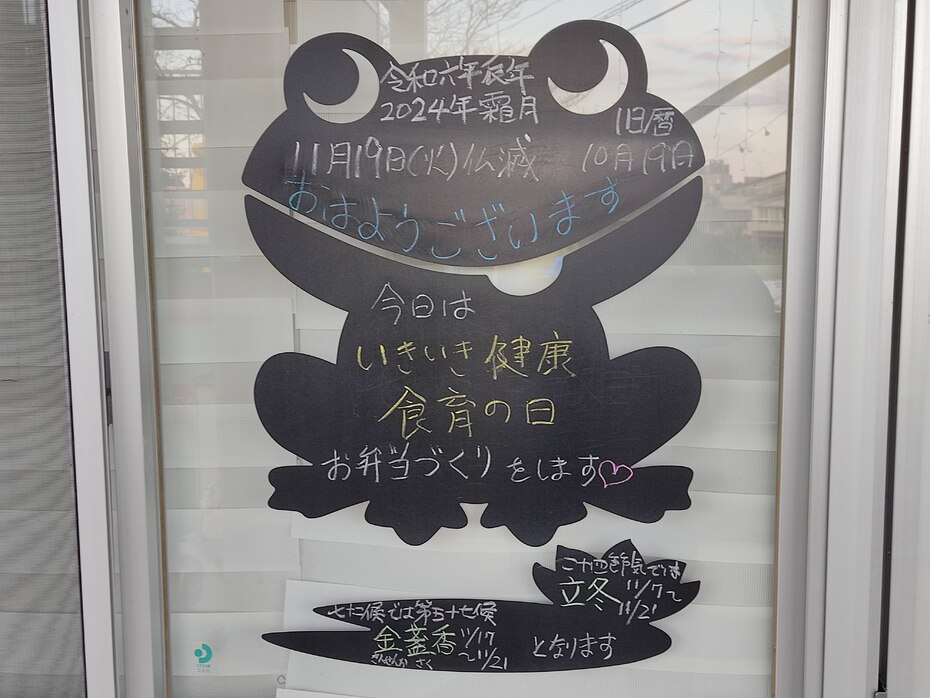 令和六年辰年
2024年霜月
旧暦
11月19日(火)仏滅 10月19日
おはようございます
今日は
いきいき健康
食育の日
お弁当づくりをします♡
二十四節気では
立冬 11/7〜
11/21
七十二候では第五十七候
金盞香 11/17
〜11/21
きんせんか さく
となります